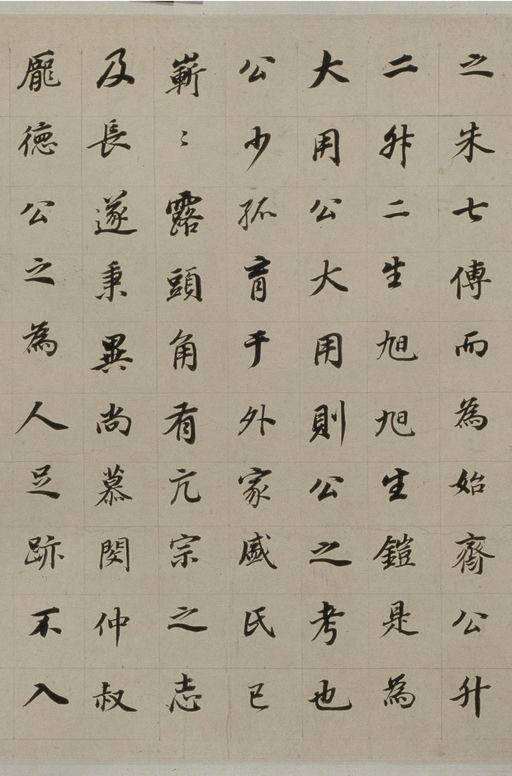 之朱七傅而為始齊公升
二升二生旭旭生鎧是為
大用公大用則公之考也
公少孤育于外家盛氏已
嶄〻露頭角有亢宗之志
及長遂秉異尚慕閔仲叔
龐德公之為人足跡不入